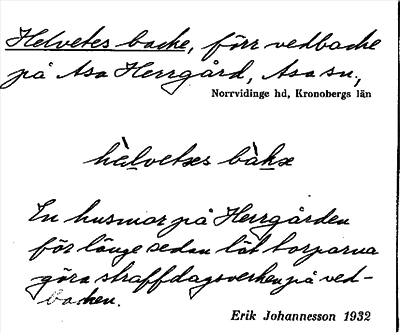 Helvetes backe, förr vedbacke
på Asa Herrgård, Asa sn,
Norrvidinge hd, Kronobergs län
hèlvetses bàkse
En husmor på Herrgården
för länge sedan lät torparna
göra straffdagsverken på ved-
backen.
Erik Johannesson 1932